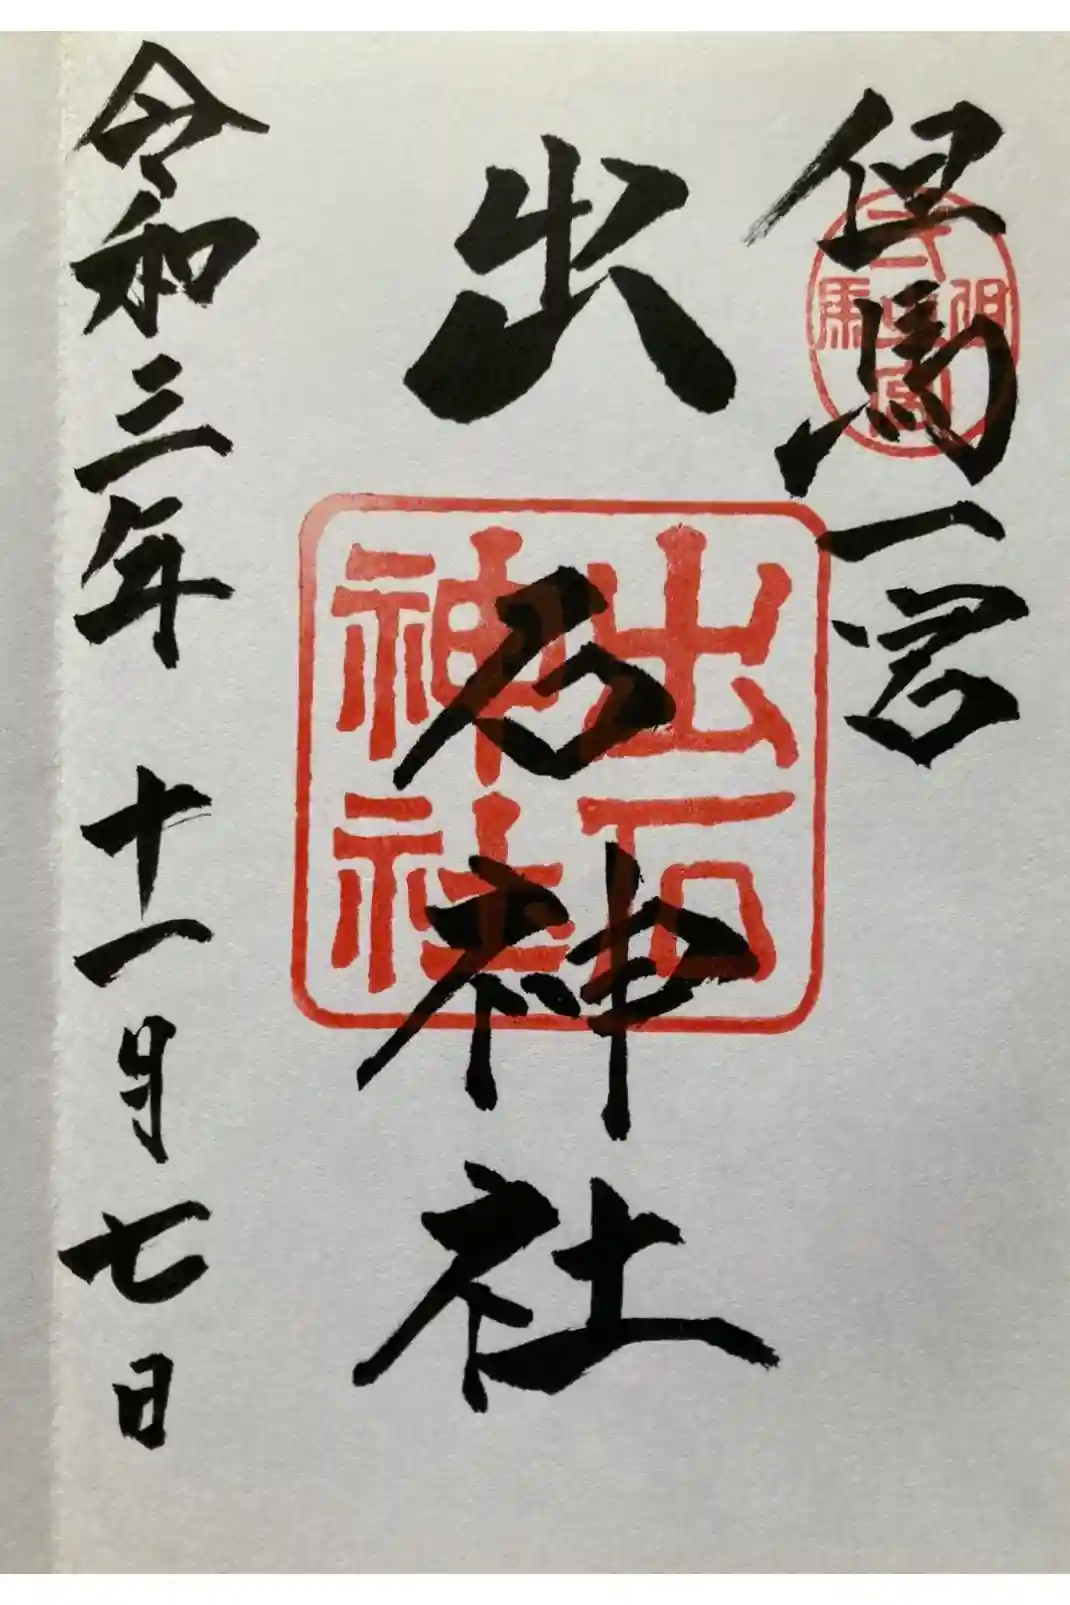 但馬一宮
出石神社
出石
神社
令和三年 十一月七日